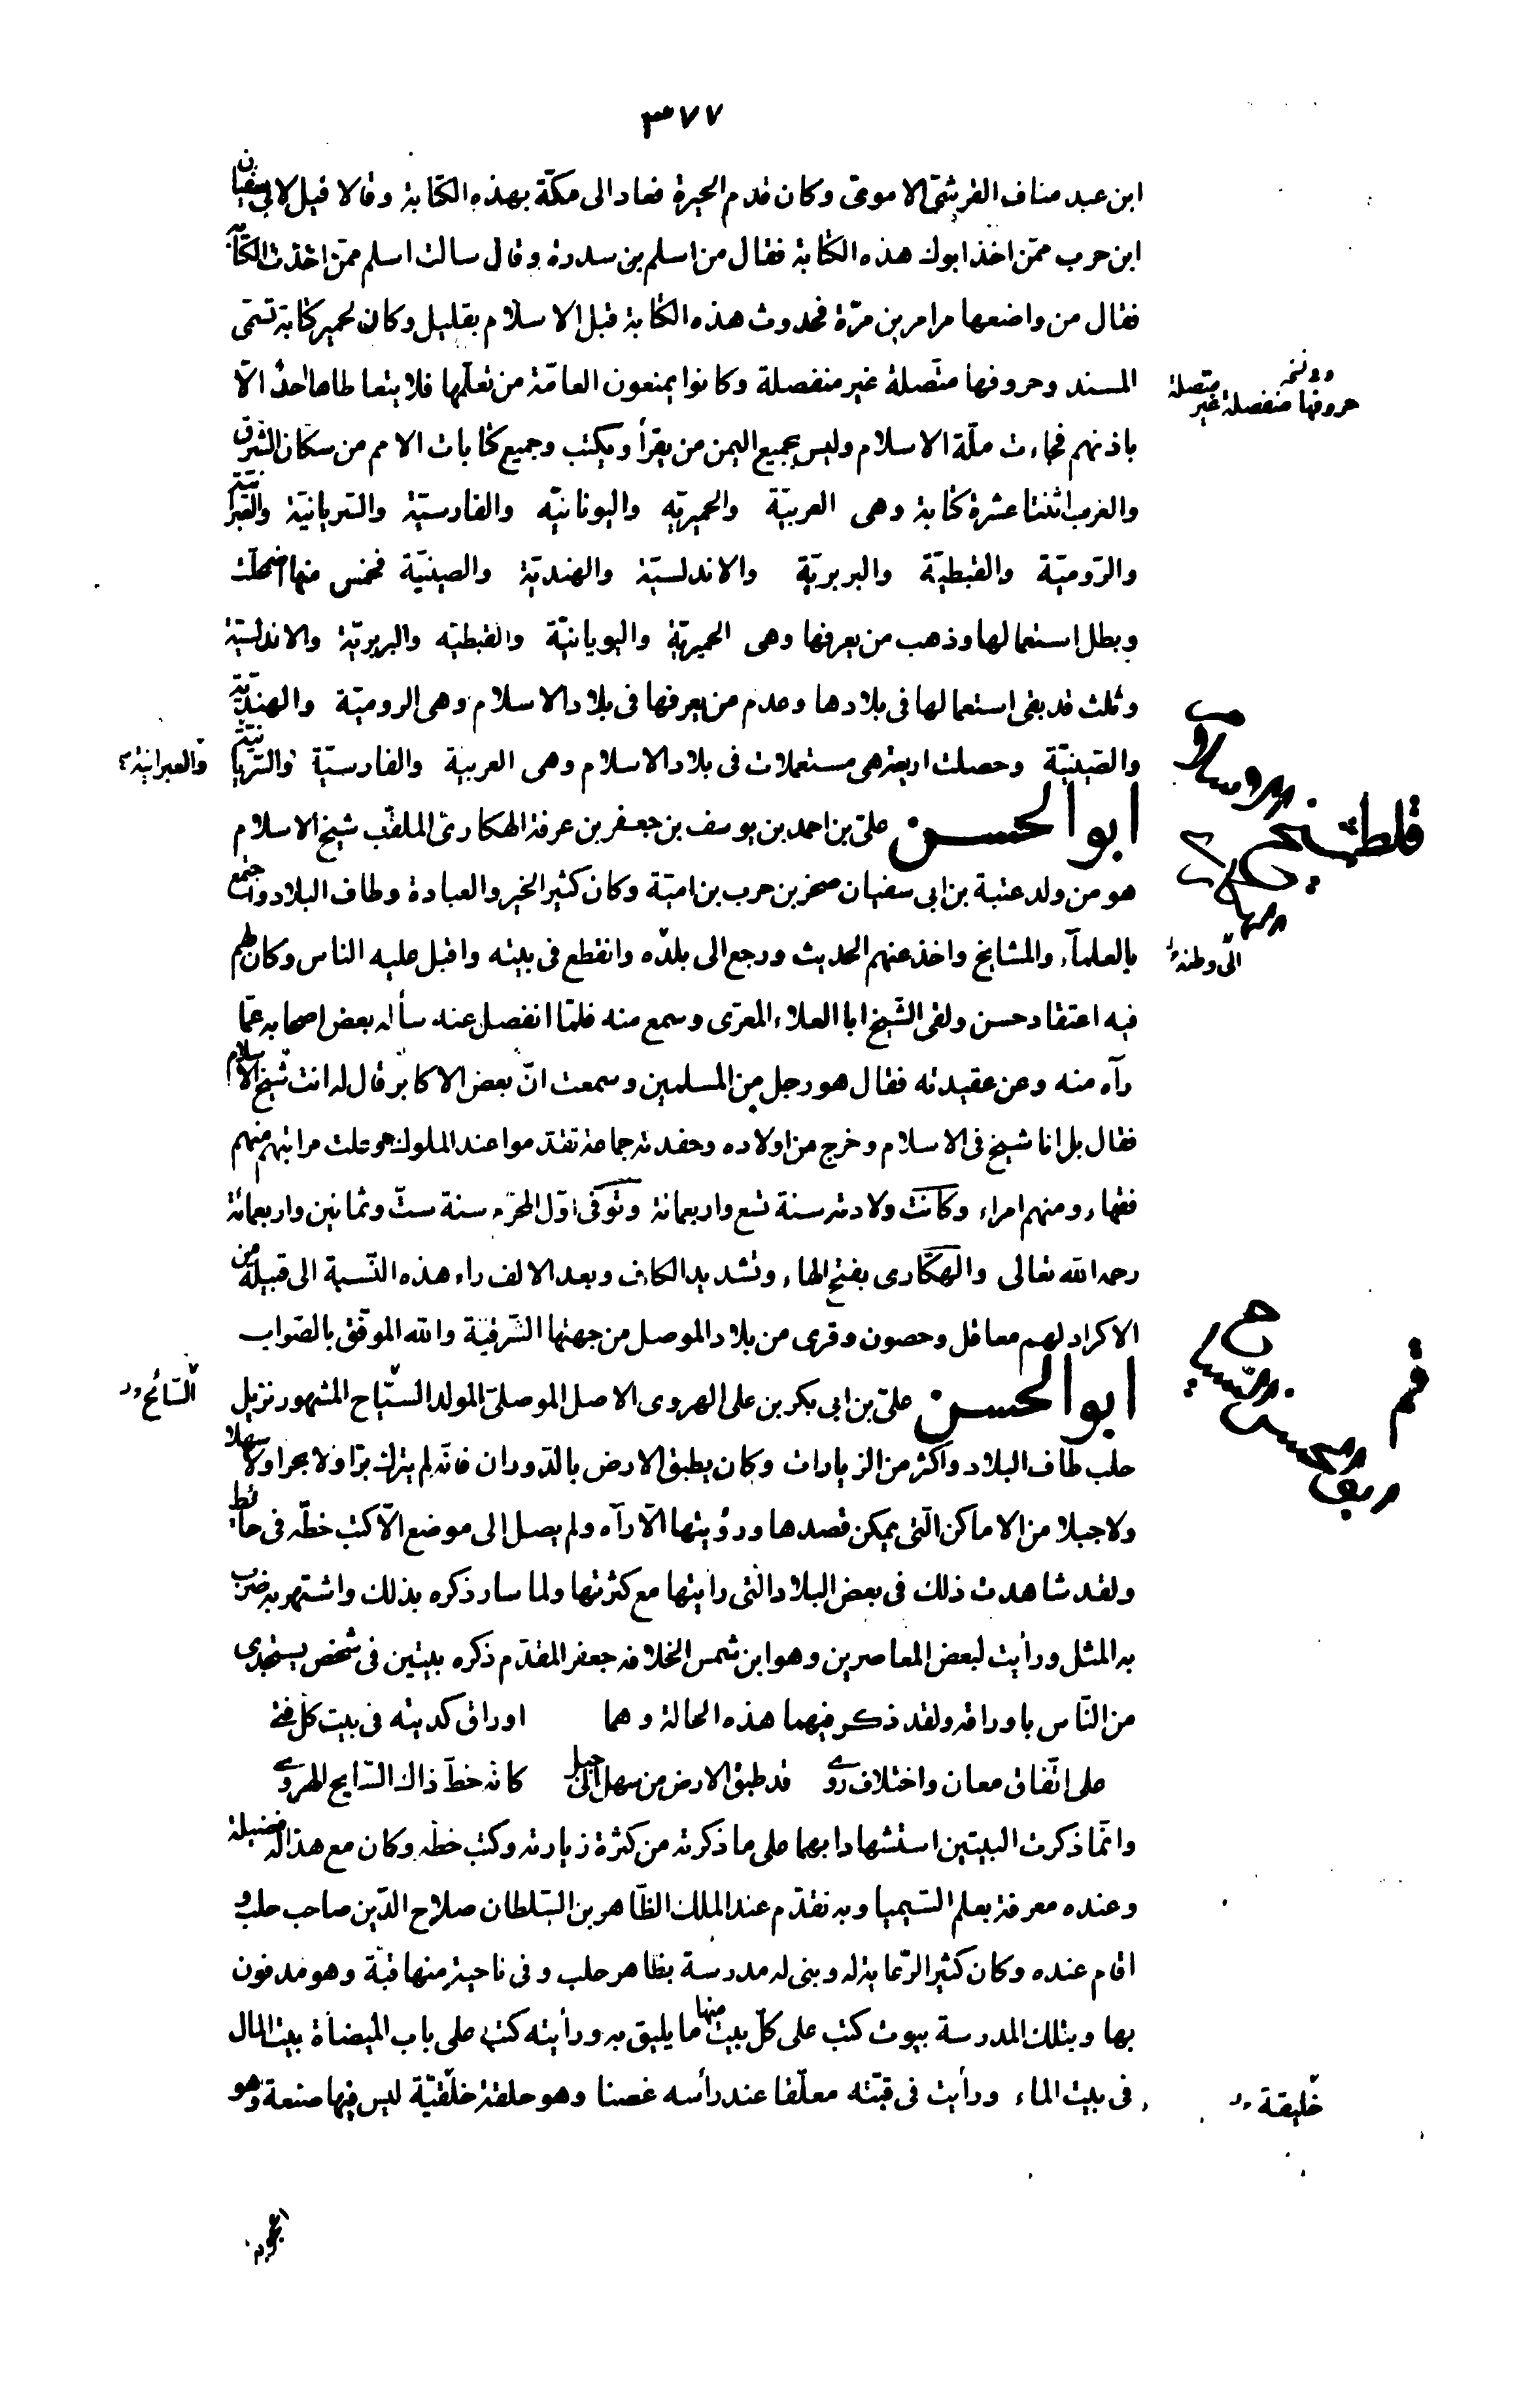 ٣٧٧
ابن عبد مناف القرشىّ الاموىّ وكان قدم الحيرة فعاد الى مكّة بهذه الكتابة وقالا قيل لابى سفيان
ابن حرب ممّن اخذ ابوك هذه الكتابة فقال من اسلم بن سدرة وقال سالت اسلم ممّن اخذت الكتابة
فقال من واضعها مرامر بن مرّة فحدوث هذه الكتابة قبل الاسلام بقليل وكان لحمير كتابة تسمّى
المسند وحروفها متّصلة غير منفصلة وكانوا يمنعون العامّة من تعلّمها فلا يتعاطاها احدٌ الّا
حروفها منفصلة غير متّصلة
باذنهم فجاءت ملّة الاسلام وليس بجميع اليمن من يقرأ ويكتب وجميع كتابات الامم من سكان الشرق
والغرب اثنتا عشرة كتابة وهى العربيّة والحميريّه واليونانيّه والفارسيّة والسّريانيّة والعبرانيّة
والرّوميّة والقبطيّة والبربريّة والاندلسيّة والهنديّة والصينيّة فخمس منها اضمحلّت
وبطل استعمالها وذهب من يعرفها وهى الحميريّة واليويانيّة والقبطيّه والبربريّة والاندلسيّة
وثلث قد بقى استعمالها فى بلادها وعدم من يعرفها فى بلاد الاسلام وهى الروميّة والهنديّة
والصّينيّة وحصلت اربعة هى مستعملات فى بلاد الاسلام وهى العربية والفارسيّة والسّريانيّة
والعبرانية
ابو الحسن علىّ بن احمد بن يوسف بن جعفر بن عرفة الهكارىّ الملقّب شيخ الاسلام
هو من ولد عتبة بن ابى سفيان صخر بن حرب بن اميّة وكان كثير الخير والعبادة وطاف البلاد واجتمع
بالعلمآء والمشايخ واخذ عنهم الحديث ورجع الى بلدّه وانقطع فى بيته واقبل عليه الناس وكان لهم
الى وطنه
فيه اعتقاد حسن ولقى الشّيخ ابا العلاء المعرّى وسمع منه فلمّا انفصل عنه سأله بعض اصحابه عمّا
رآه منه وعن عقيدته فقال هو رجل من المسلمين وسمعت انّ بعض الاكابر قال له انت شيخ الاسلام
فقال بل انا شيخ فى الاسلام وخرج من اولاده وحفدته جماعة تقدّموا عند الملوك وعلت مراتبهم منهم
فقهاء ومنهم امراء وكانت ولادته سنة تسع واربعمائة وتوفّى اوّل المحرّم سنة ستّ وثمانين واربعمائة
رحمه الله تعالى والهكّارى بفتح الهاء وتشديد الكاف وبعد الالف راء هذه النّسبة الى قبيلة من
الاكراد لهم معاقل وحصون وقرى من بلاد الموصل من جهتها الشّرقيّة والله الموفّق بالصّواب
ابو الحسن علىّ بن ابى بكر بن على الهروى الاصل الموصلىّ المولد السّيّاح المشهور نزيل
السّائح
حلب طاف البلاد واكثر من الزيارات وكان يطبق الارض بالدّوران فانّه لم يترك برّا ولا بحرا ولا سهلا
ولا جبلا من الاماكن الّتى يمكن قصدها ورؤيتها الّا رآه ولم يصل الى موضع الّا كتب خطّه فى حائط
ولقد شاهدت ذلك فى بعض البلاد الّتى رايتها مع كثرتها ولما سار ذكره بذلك واشتهر به ضرب
به المثل ورأيت لبعض المعاصرين وهو ابن شمس الخلافة جعفر المقدّم ذكره بيتين فى شخص يستجدى
من النّاس باوراقه ولقد ذكر فيهما هذه الحالة وهما اوراق كديته فى بيت كلّ فتى
على اتّفاق معان واختلاف روى قد طبق الارض من سهل الى جبل كانّه خطّ ذاك السّايح الهروى
وانّما ذكرت البيتين استشهادا بهما على ما ذكرته من كثرة زيارته وكتب خطّه وكان مع هذا له فضيلة
وعنده معرفة بعلم السّيميا وبه تقدّم عند الملك الظّاهر بن السّلطان صلاح الدّين صاحب حلب و
اقام عنده وكان كثير الرّعاية له وبنى له مدرسة بظاهر حلب وفى ناحية منها قبّة وهو مدفون
بها وبتلك المدرسة بيوت كتب على كلّ بيت منها ما يليق به ورأيته كتب على باب الميضأة بيت المال
فى بيت الماء ورأيت فى قبّته معلّقا عند رأسه غصنا وهو حلقة خلّقيّة ليس فيها صنعة وهو
خليقة